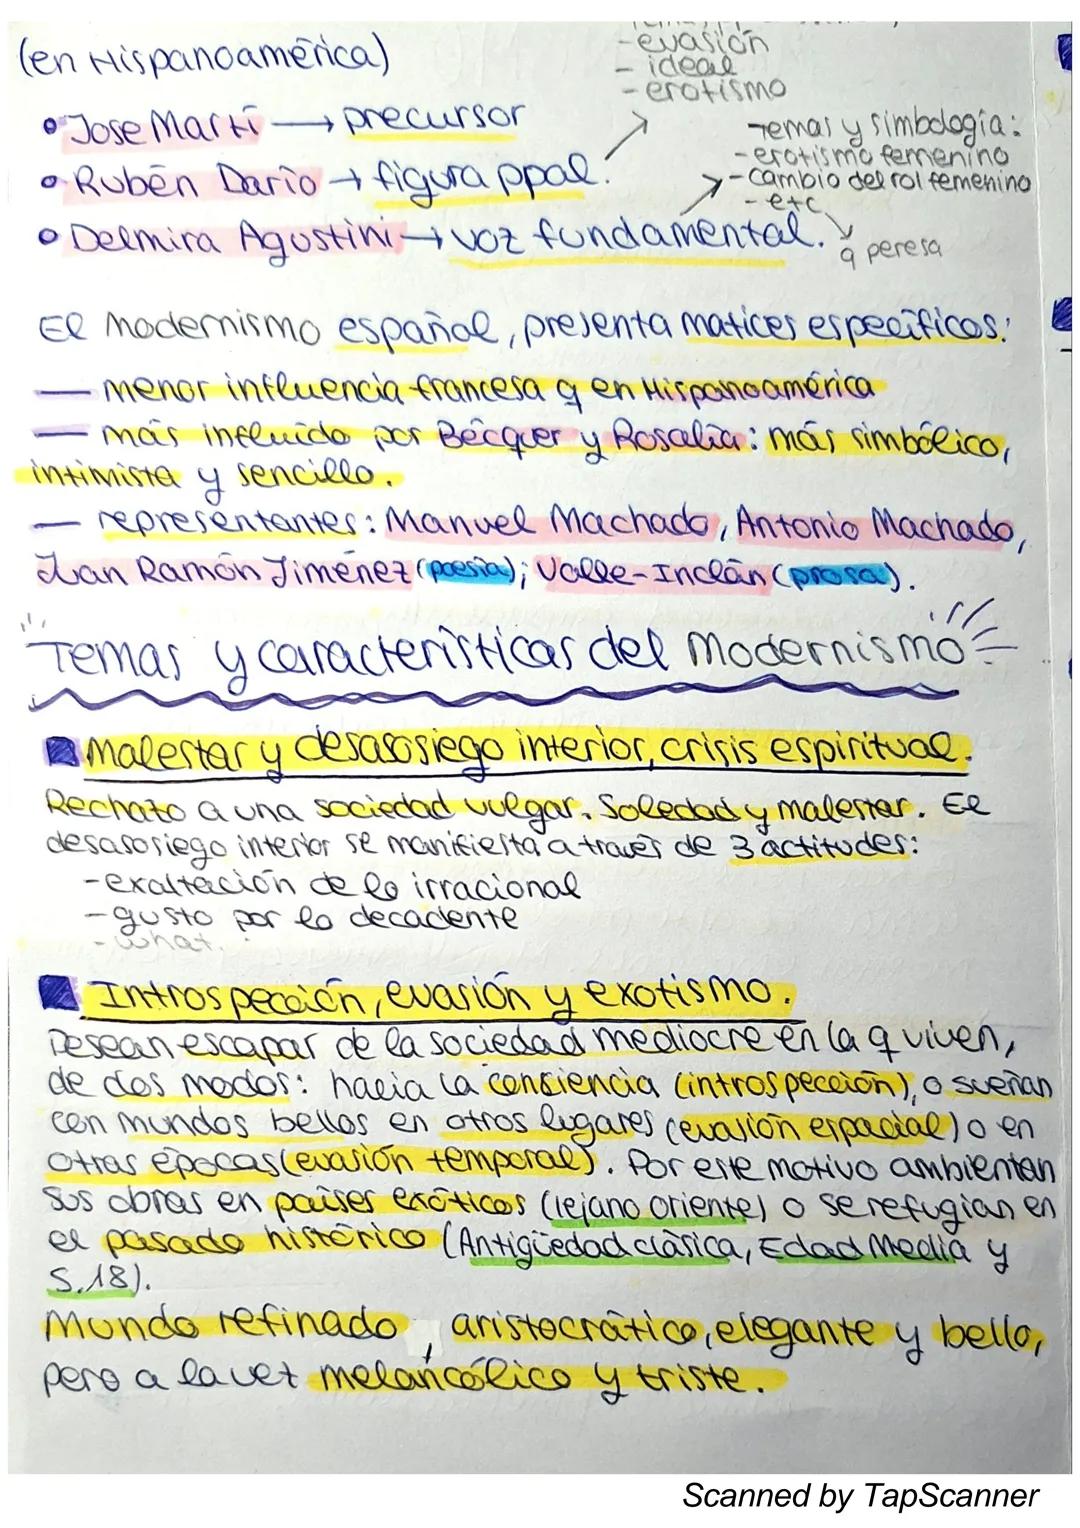 (en Hispanoamérica)
-evasión
- ideal
- erotismo
• Jose Martí → precursor
• Rubén Darío → figura ppal.
Temas y simbología:
-erotismo femenino
-cambio del rol femenino
- etc
• Delmira Agustini → voz fundamental.
q peresa
El Modernismo español, presenta matices específicos:
— menor influencia francesa q en Hispanoamérica
— más influido por Bécquer y Rosalía: más simbólico,
intimista y sencillo.
— representantes: Manuel Machado, Antonio Machado,
Juan Ramón Jiménez (poesía); Valle-Inclán (prosa).
Temas y características del Modernismo
Malestar y desasosiego interior, crisis espiritual.
Rechazo a una sociedad vulgar. Soledad y malestar. El
desasosiego interior se manifiesta a través de 3 actitudes:
-exaltación de lo irracional
-gusto por lo decadente
- what.
Introspección, evasión y exotismo.
Desean escapar de la sociedad mediocre en la q viven,
de dos modos: hacia la conciencia (introspección), o sueñan
con mundos bellos en otros lugares (evasión espacial) o en
otras épocas (evasión temporal). Por este motivo ambientan
sus obras en países exóticos (lejano oriente) o se refugian en
el pasado histórico (Antigüedad clásica, Edad Media y
S.18).
Mundo refinado, aristocrático, elegante y bello,
pero a la vez melancólico y triste.
Scanned by TapScanner